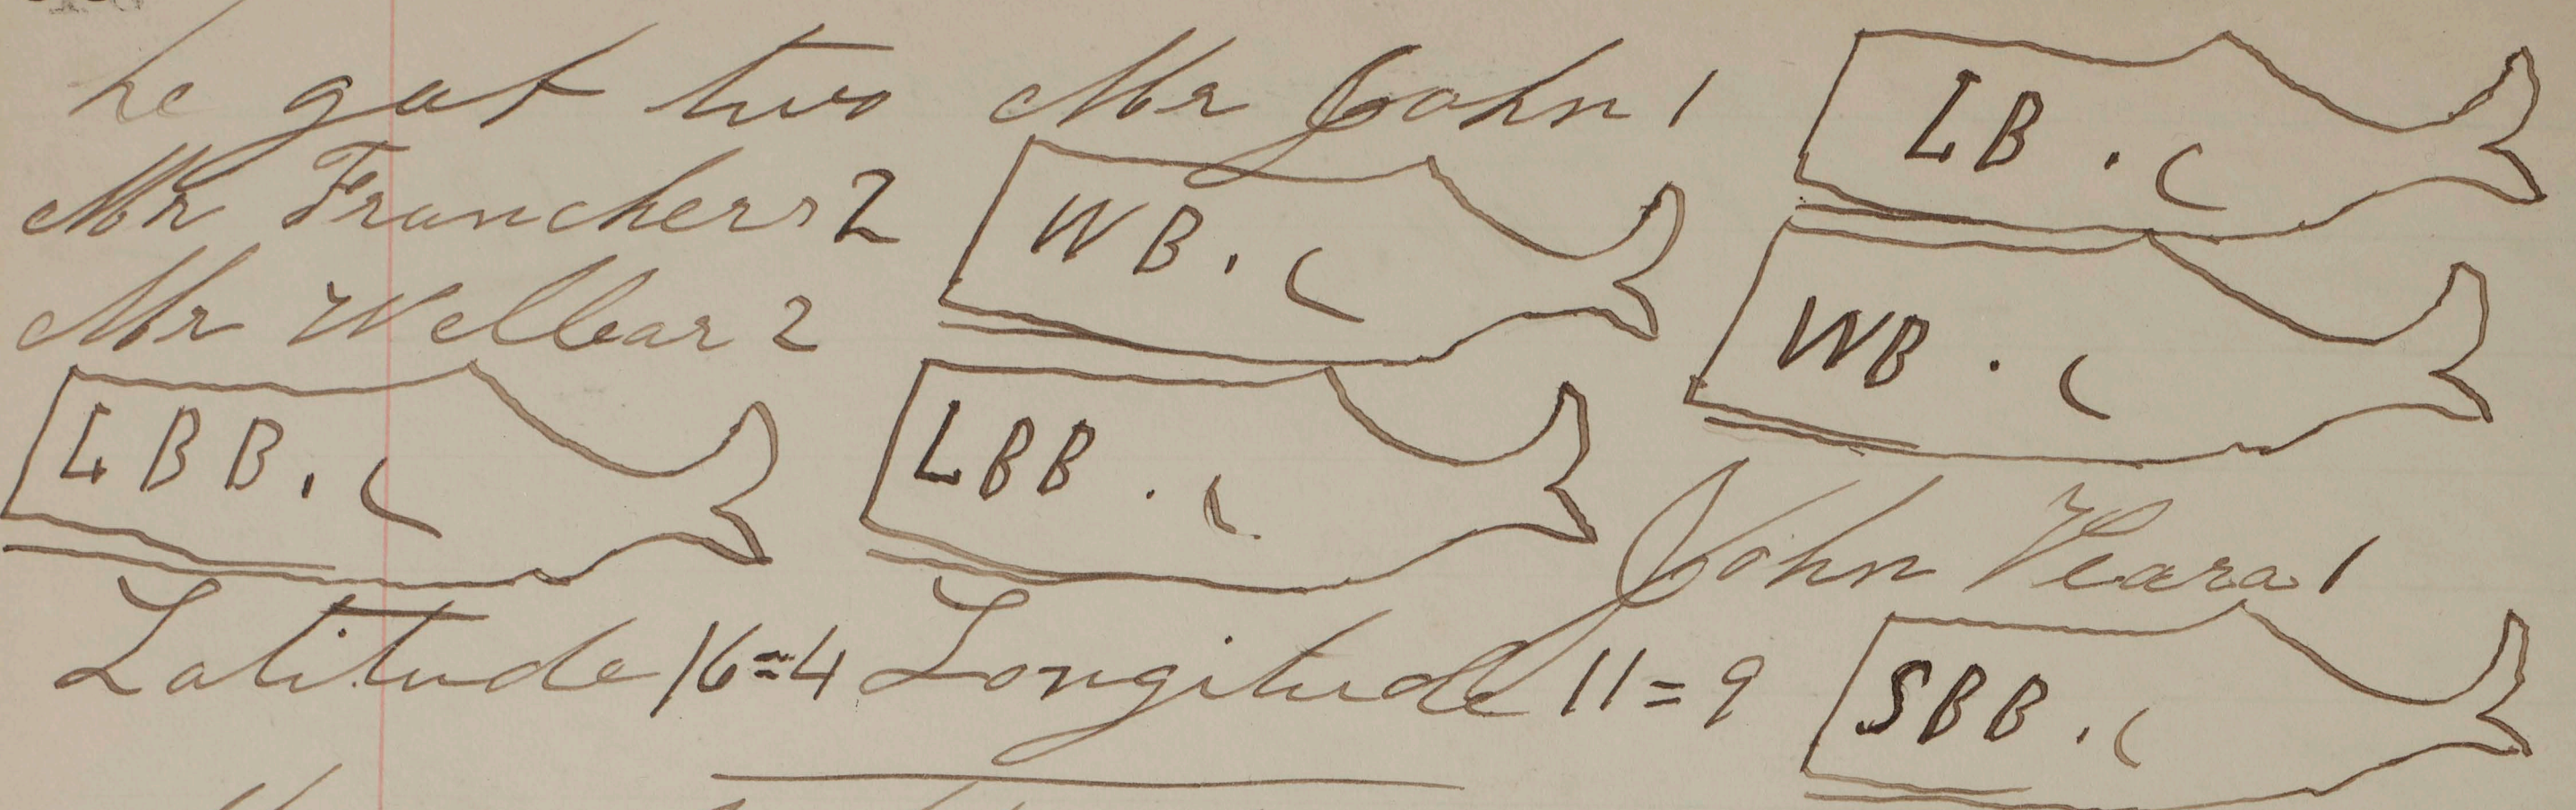 he gat two Mr John 1
LB.
Mr Franchers 2
WB.
WB.
Mr Welbar 2
LBB.
LBB.
John Veara 1
Latitude 16=4 Longitude 11=9
SBB.